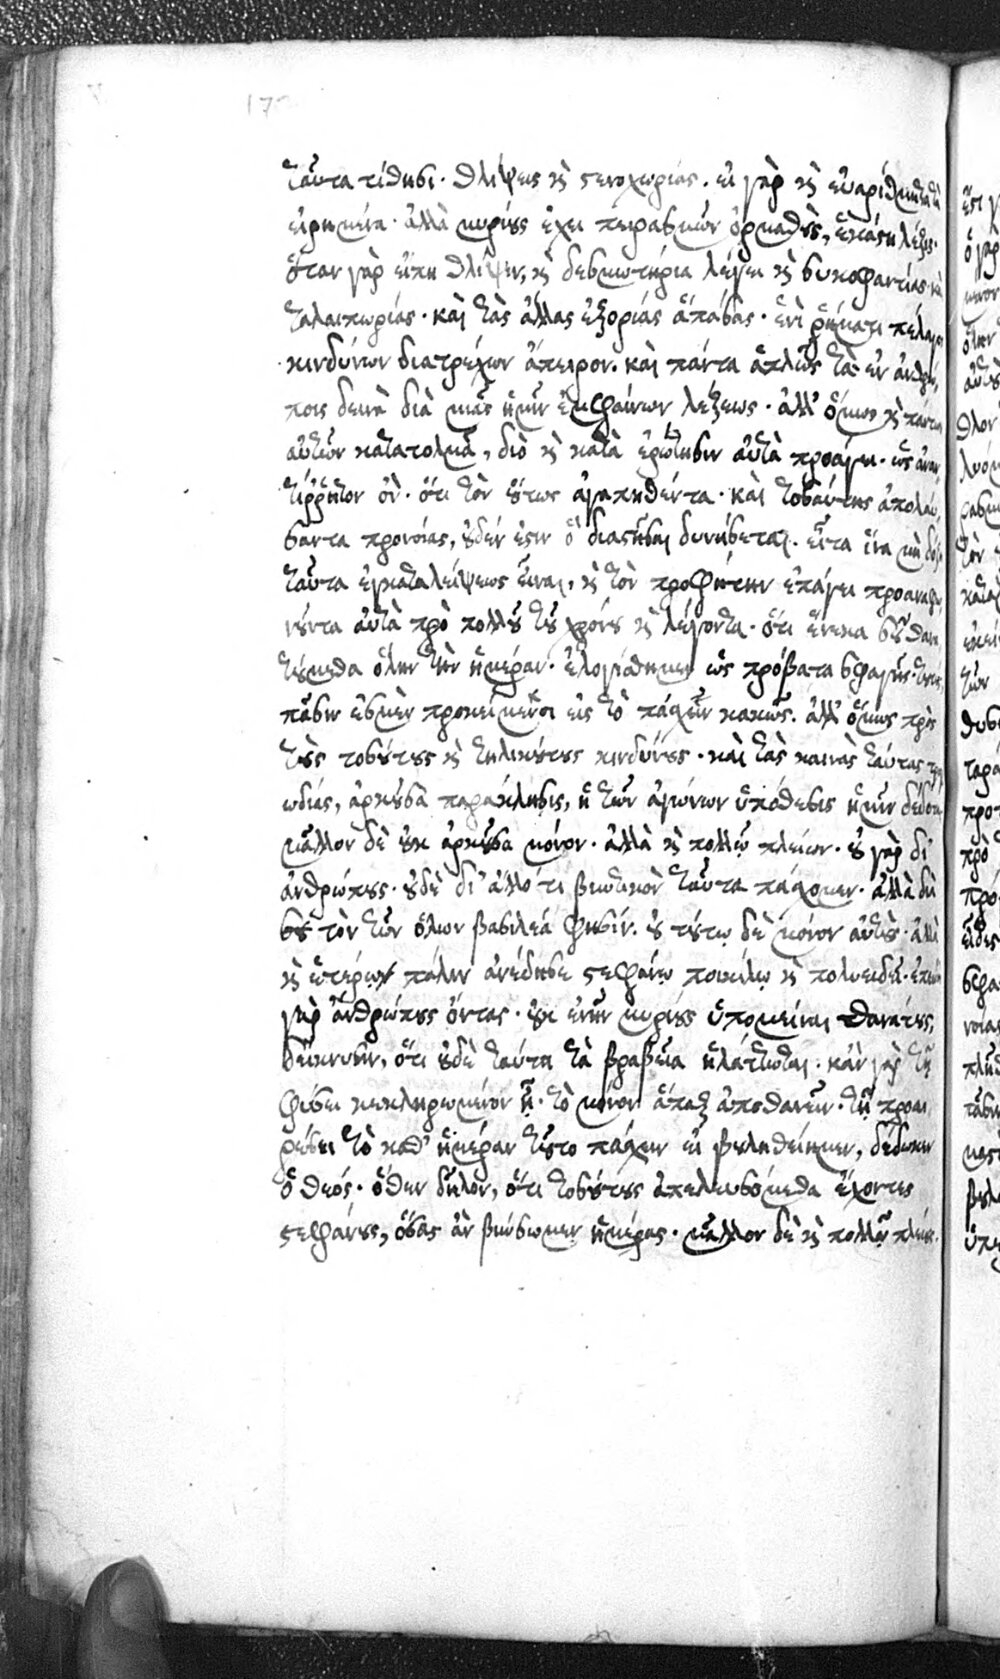 ταῦτα τίθησι· θλίψεις κὶ στενοχωρίας· εἰ γὰρ κὶ εὐαρίθμητα τὰ
εἰρημένα· ἀλλὰ μυρίους ἔχει πειρασμῶν ὁρμαθοὺς, ἑκάστη λέξις·
ὅταν γὰρ εἴπῃ θλίψιν, κὶ δεσμωτήρια λέγει κὶ συκοφαντίας· κὶ
ταλαιπωρίας· καὶ τὰς ἄλλας ἐξορίας ἁπάσας· ἑνὶ ῥήματι πέλαγος
κινδύνων διατρέχων ἄπειρον· καὶ πάντα ἁπλῶς τὰ ἐν ἀνθρώ
ποις δεινὰ διὰ μιᾶς ἡμῖν ἐμφαίνων λέξεως· ἀλλ' ὅμως κὶ πάντων
αὐτῶν κατατολμᾶ, διὸ κὶ κατὰ ἐρώτησιν αὐτὰ προάγει· ὡς ἀναν
τίρρητον ὂν· ὅτι τὸν οὕτως ἀγαπηθέντα· καὶ τοσαύτης ἀπολαύ
σαντα προνοίας, οὐδέν ἐστιν ὃ διαστῆσαι δυνήσεται· εἶτα ἵνα μὴ δόξῃ
ταῦτα ἐγκαταλείψεως εἶναι, κὶ τὸν προφήτην ἐπάγει προαναφω
νοῦντα αὐτὰ πρὸ πολλοῦ τοῦ χρόνου κὶ λέγοντα· ὅτι ἕνεκα σοῦ θανα
τούμεθα ὅλην τὴν ἡμέραν· ἐλογίσθημεν ὡς πρόβατα σφαγῆς· τουτέστι
πᾶσιν ἐσμὲν προκείμενοι εἰς τὸ πάσχειν κακῶς· ἀλλ' ὅμως πρὸς
τοὺς τοσούτους κὶ τηλικούτους κινδύνους· καὶ τὰς καινὰς ταύτας τραγ
ωδίας, ἀρκοῦσα παράκλησις, ἡ τῶν ἀγώνων ὑπόθεσις ἡμῖν δέδοται
μᾶλλον δὲ οὐκ ἀρκοῦσα μόνον· ἀλλὰ κὶ πολλῷ πλείων· οὐ γὰρ δι'
ἀνθρώπους· οὐδὲ δι' ἄλλό τι βιωτικὸν ταῦτα πάσχομεν· ἀλλὰ διὰ
σὲ τὸν τῶν ὅλων βασιλέα φησίν· οὐ τούτῳ δὲ μόνον αὐτοὺς· ἀλλὰ
κὶ ἑτέρῳ πάλιν ἀνέδησε στεφάνῳ ποικίλῳ κὶ πολυειδεῖ· ἐπειδὴ
γὰρ ἀνθρώπους ὄντας· οὐκ ἐνῆν μυρίους ὑπομεῖναι θανάτους,
δείκνυσιν, ὅτι οὐδὲ ταύτῃ τὰ βραβεῖα ἠλάττωται· κἂν γὰρ τῇ
φύσει κεκληρωμένον ᾖ· τὸ μόνον ἅπαξ ἀποθανεῖν· τῇ προαι
ρέσει τὸ καθ' ἡμέραν τοῦτο πάσχειν εἰ βουληθείημεν, δέδωκεν
ὁ θεός· ὅθεν δῆλον, ὅτι τοσούτους ἀπελευσόμεθα ἔχοντες
στεφάνους, ὅσας ἂν βιώσωμεν ἡμέρας· μᾶλλον δὲ κὶ πολλῷ πλείους·